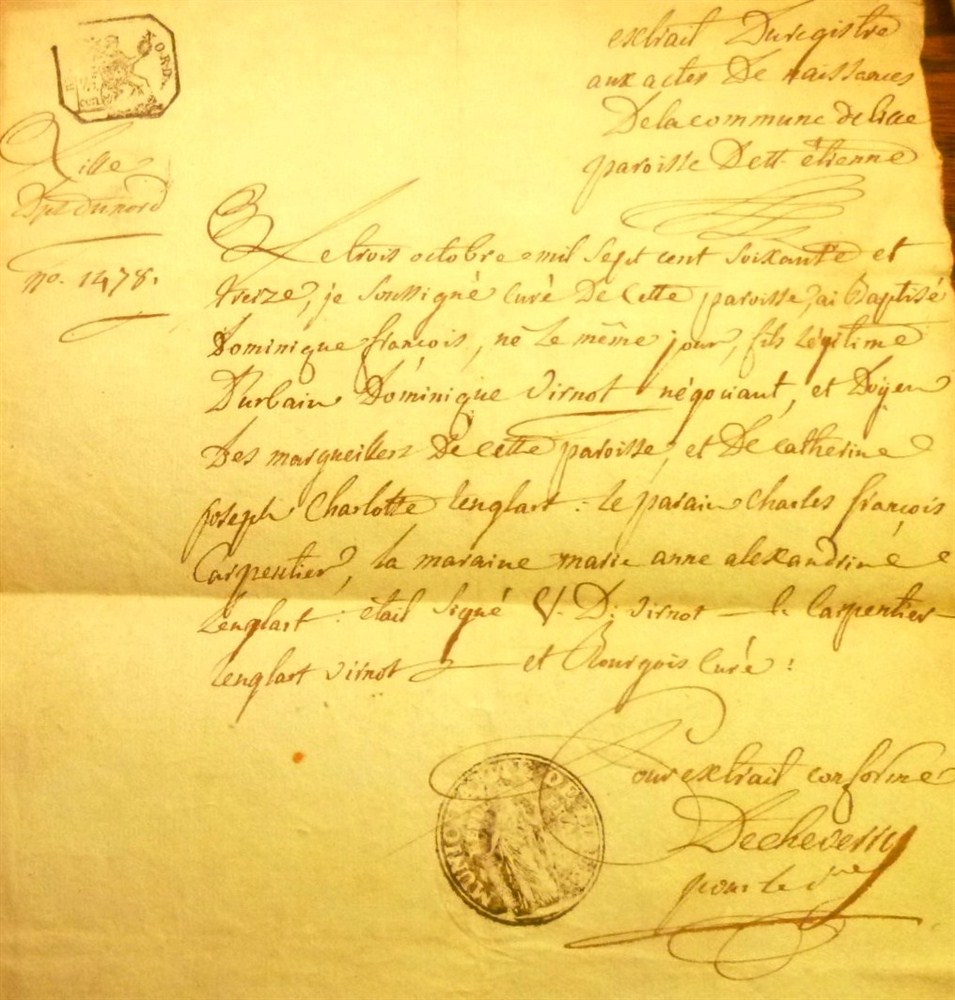 NORD
25
cen
extrait Duregistre
aux actes De naissances
Delacommune de lille
paroisse De st étienne
Lille
Dpt du nord
no. 1478.
Le trois octobre mil Sept cent Soixante et
treize, je Soussigné Curé De Cette paroisse, ai Baptisé
Dominique françois, né Le même jour, fils Légitime
D'urbain Dominique Virnot négociant, et Doyen
Des marguillers De cette paroisse, et De catherine
joseph Charlotte lenglart : le parain Charles françois
Carpentier, la maraine marie anne alexandrine
Lenglart : était Signé V. D. Virnot — le Carpentier —
lenglart virnot — et Bourgois Curé :
Pour extrait conforme
Decheverry
pour le
MUNICIP